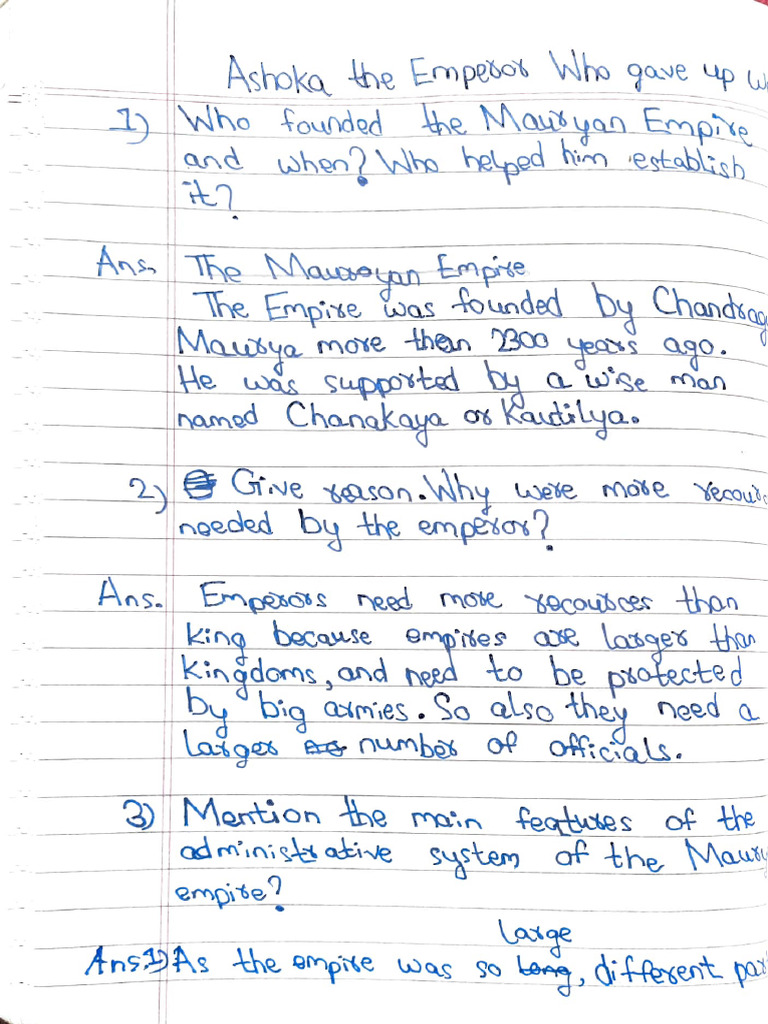 Ashoka the Emperor Who gave up w
1) Who founded the Mauryan Empire
and when? Who helped him establish
it?
Ans. The Mauroyan Empire
The Empire was founded by Chandrag
Maurya more then 2300 years ago.
He was supported by a wise man
named Chanakaya or Kautilya.
2) Give reason. Why were more recour
needed by the emperor?
Ans. Emperors need more recources than
king because empires are larger than
kingdoms, and need to be protected
by big armies. So also they need a
larger number of officials.
3) Mention the main features of the
administrative system of the Maury
empire?
large
Ans. 1) As the empire was so long, different par